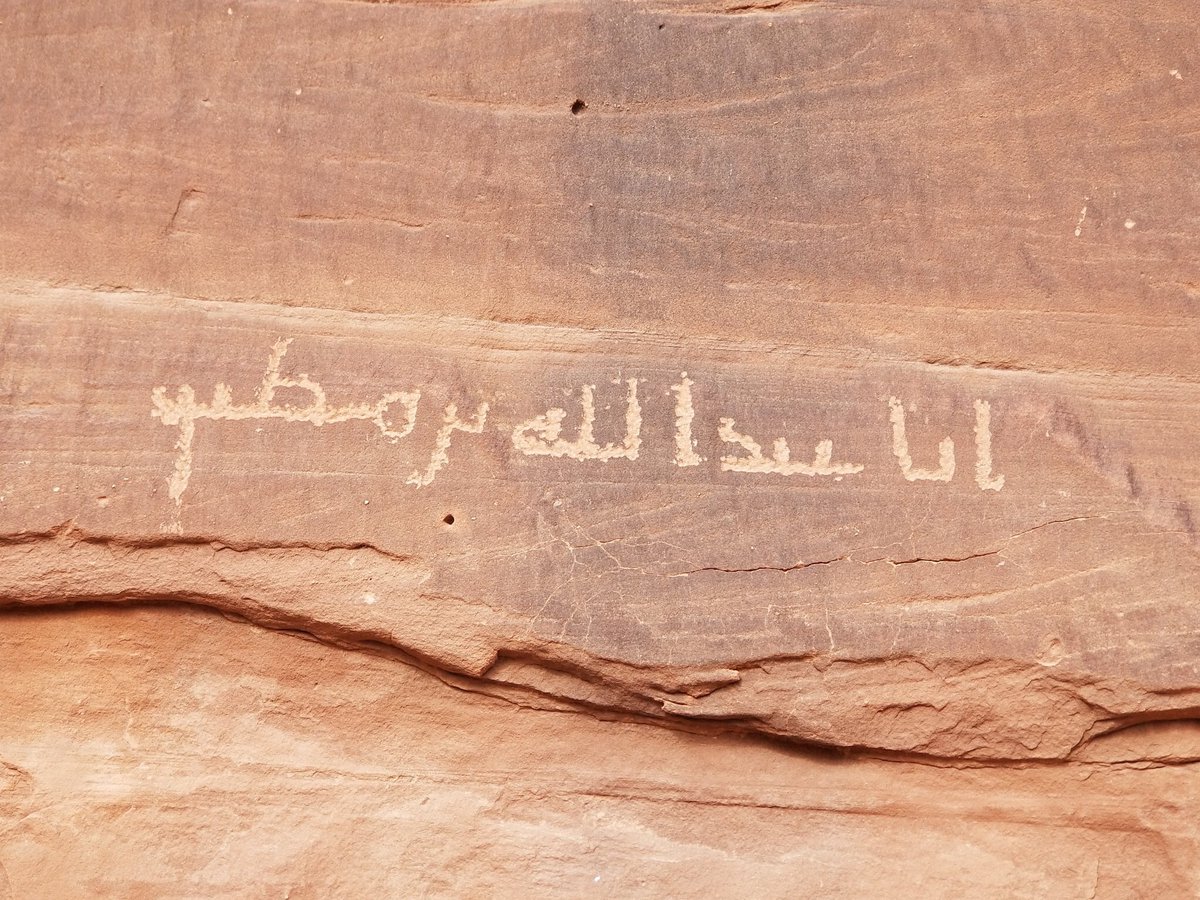 انا عبد الله بن مطيع